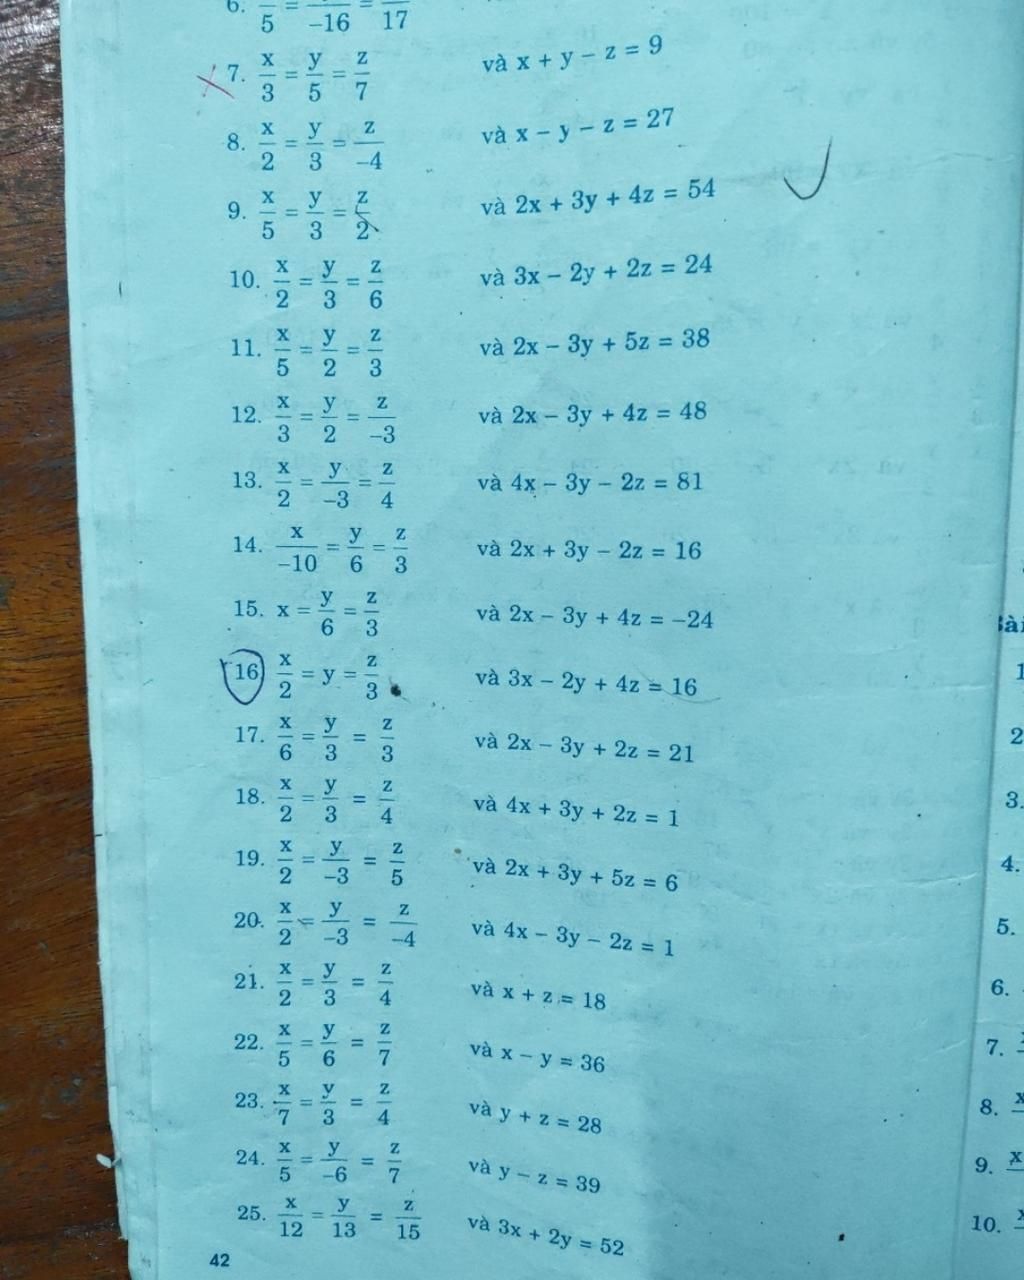 6. /5 = /-16 = /17
7. x/3 = y/5 = z/7 và x + y - z = 9
8. x/2 = y/3 = z/-4 và x - y - z = 27
9. x/5 = y/3 = z/2 và 2x + 3y + 4z = 54
10. x/2 = y/3 = z/6 và 3x - 2y + 2z = 24
11. x/5 = y/2 = z/3 và 2x - 3y + 5z = 38
12. x/3 = y/2 = z/-3 và 2x - 3y + 4z = 48
13. x/2 = y/-3 = z/4 và 4x - 3y - 2z = 81
14. x/-10 = y/6 = z/3 và 2x + 3y - 2z = 16
15. x = y/6 = z/3 và 2x - 3y + 4z = -24
16 x/2 = y = z/3 và 3x - 2y + 4z = 16
17. x/6 = y/3 = z/3 và 2x - 3y + 2z = 21
18. x/2 = y/3 = z/4 và 4x + 3y + 2z = 1
19. x/2 = y/-3 = z/5 và 2x + 3y + 5z = 6
20. x/2 = y/-3 = z/-4 và 4x - 3y - 2z = 1
21. x/2 = y/3 = z/4 và x + z = 18
22. x/5 = y/6 = z/7 và x - y = 36
23. x/7 = y/3 = z/4 và y + z = 28
24. x/5 = y/-6 = z/7 và y - z = 39
25. x/12 = y/13 = z/15 và 3x + 2y = 52
42
Bài
1
2
3.
4.
5.
6.
7.
8. x
9. x
10. x